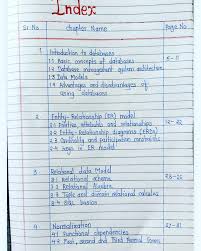 Index
Sr. No. Chapter Name Page No
1 Introduction to databases
1.1 Basic concepts of databases 5-11
1.2 Database management system architecture
1.3 Data Models
1.4 Advantages and disadvantages of
using databases
2 Entity-Relationship (ER) model
2.1 Entities, attributes and relationships 12-22
2.2 Entity-Relationship diagrams (ERDs)
2.3 Cardinality and participation constraints
2.4 keys in ER model
3 Relational data Model
3.1 Relational schema 23-
3.2 Relational Algebra
3.3 Tuple and domain relational calculus
3.4 SQL basics
4 Normalization
4.1 Functional dependencies
4.2 First, second and Third Normal forms